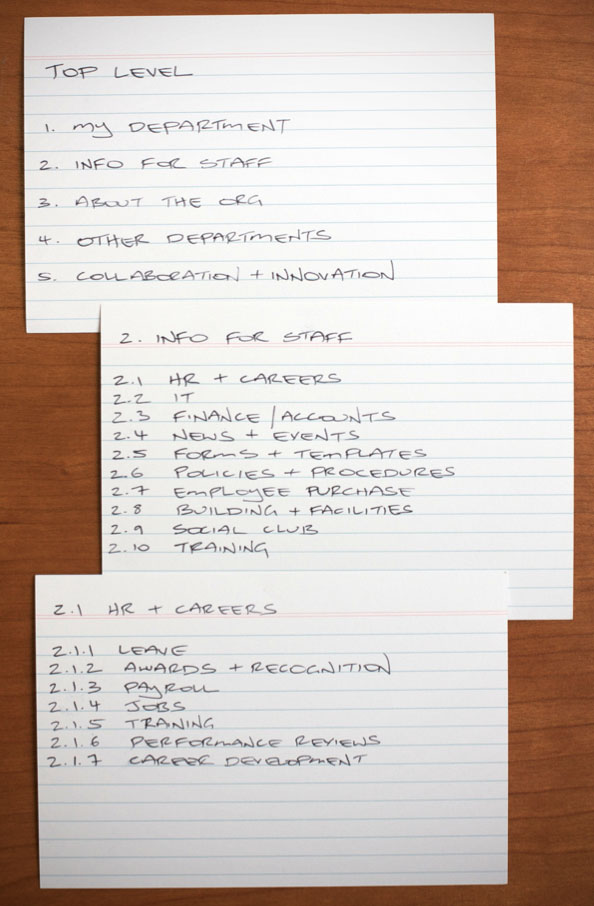 TOP LEVEL
1. MY DEPARTMENT
2. INFO FOR STAFF
3. ABOUT THE ORG
4. OTHER DEPARTMENTS
5. COLLABORATION + INNOVATION
2. INFO FOR STAFF
2.1 HR + CAREERS
2.2 IT
2.3 FINANCE/ACCOUNTS
2.4 NEWS + EVENTS
2.5 FORMS + TEMPLATES
2.6 POLICIES + PROCEDURES
2.7 EMPLOYEE PURCHASE
2.8 BUILDING + FACILITIES
2.9 SOCIAL CLUB
2.10 TRAINING
2.1 HR + CAREERS
2.1.1 LEAVE
2.1.2 AWARDS + RECOGNITION
2.1.3 PAYROLL
2.1.4 JOBS
2.1.5 TRAINING
2.1.6 PERFORMANCE REVIEWS
2.1.7 CAREER DEVELOPMENT